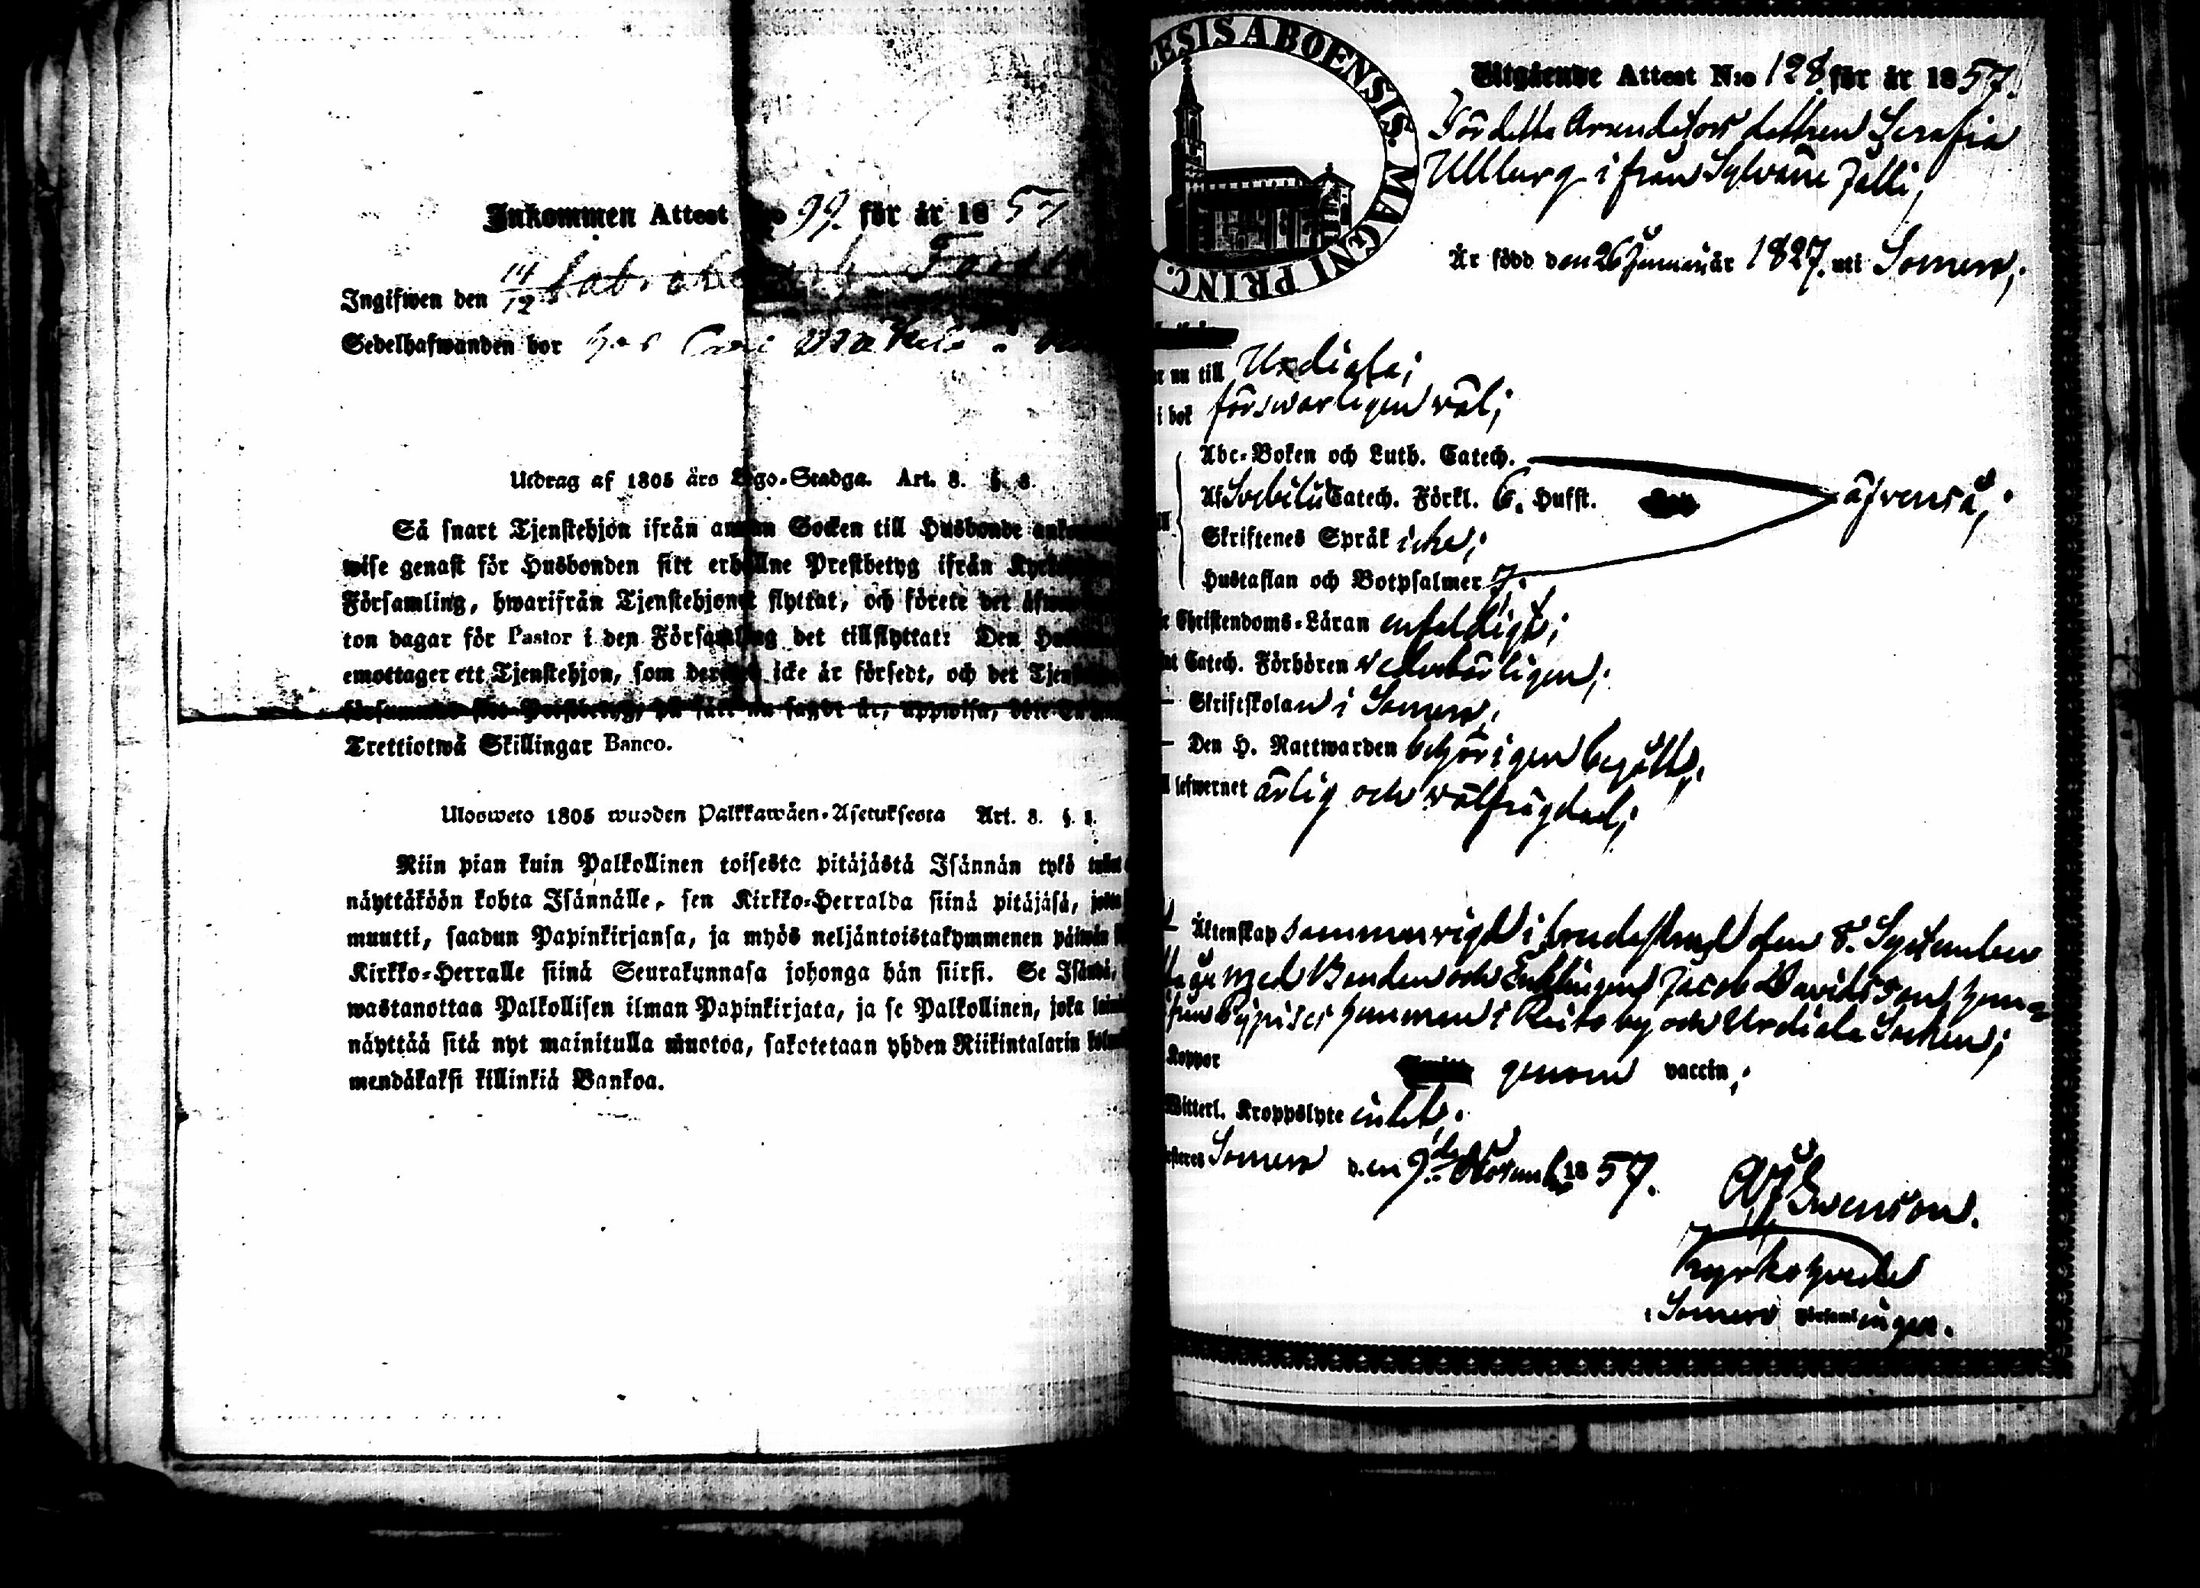 Inkommen Attest N:o 99. för år 1857
Ingifwen den 14/12
Sedelhafwanden bor hos
Utdrag af 1805 års Lego-Stadga. Art. 8. §. 8.
Så snart Tjenstehjon ifrån annan Socken till Husbonde
wise genast för Husbonden sitt erhållne Prestbetyg ifrån
Församling, hwarifrån Tjenstehjonet flyttat, och förete det
ton dagar för Pastor i den Församling det tillflyttat: Den
emottager ett Tjenstehjon, som dermed icke är försedt, och det
försummar sitt Prestbetyg, på sätt nu sagdt är, uppwisa, böte
Trettiotwå Skillingar Banco.
Ulosweto 1805 wuoden Palkkawäen-Asetuksesta Art. 8. §. 8.
Niin pian kuin Palkollinen toisesta pitäjästä Isännän tykö
näyttäköön kohta Isännälle, sen Kirkko-Herralda siinä pitäjäsä, josta
muutti, saadun Papinkirjansa, ja myös neljäntoistakymmenen päiwän
Kirkko-Herralle siinä Seurakunnasa johonga hän siirsi. Se Isändä,
wastanottaa Palkollisen ilman Papinkirjata, ja se Palkollinen, joka
näyttää sitä nyt mainitulla muotoa, sakotetaan yhden Riikintalarin
mendäkaksi killinkiä Bankoa.
ESIS ABOENSIS. MAGNI PRINC.
Utgående Attest N:o 128 för år 1857.
För detta Arrendators dottren Serafia
Ullberg ifrån Sylvänä
Är född den 26 Januari är 1827. uti Somero;
nu till Urdiala;
i bok förswarligen wäl;
Abc-Boken och Luth. Catech.
Af Svebilii Catech. Förkl. 6. Hufst. äfvenså;
Skriftenes Språk icke;
Hustaflan och Botpsalmer 7.
Christendoms-Läran enfaldigt;
Catech. Förhören vederbörligen;
— Skriftskolan i Somero;
— Den H. Nattwarden behörigen begått;
lefwernet ärlig och wälfrägdad;
Äktenskap sammanvigd i brudestund den 8. September
med Bonden och Enklingen Jacob Davidsson
i by och Urdiala Socken;
Koppor genom vaccin;
Witterl. Kroppslyte intet.
Somero den 9de Novemb 1857.
Svenson.
Kyrkoherde
i Somero Församlingen.